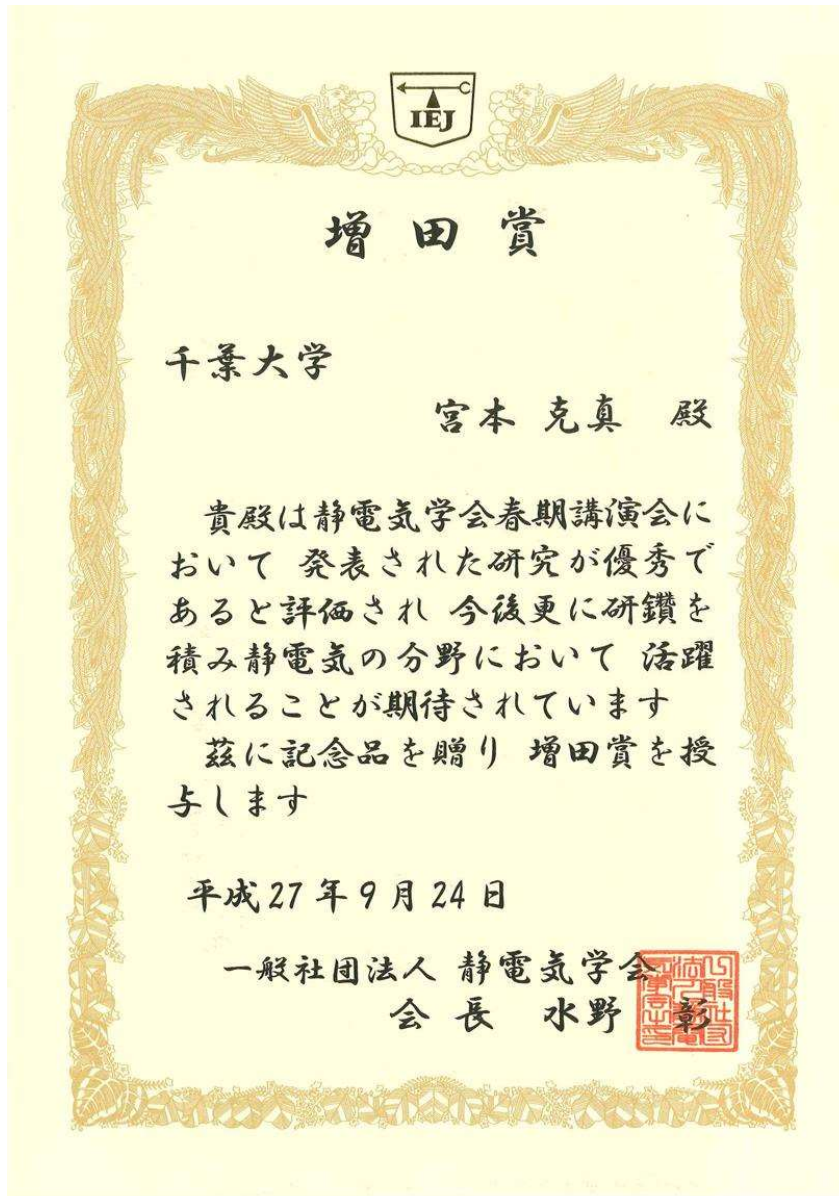 IEJ
増田賞
千葉大学
宮本 克真 殿
貴殿は静電気学会春期講演会に
おいて 発表された研究が優秀で
あると評価され 今後更に研鑽を
積み静電気の分野において 活躍
されることが期待されています
茲に記念品を贈り 増田賞を授
与します
平成27年9月24日
一般社団法人 静電気学会
会長 水野 彰